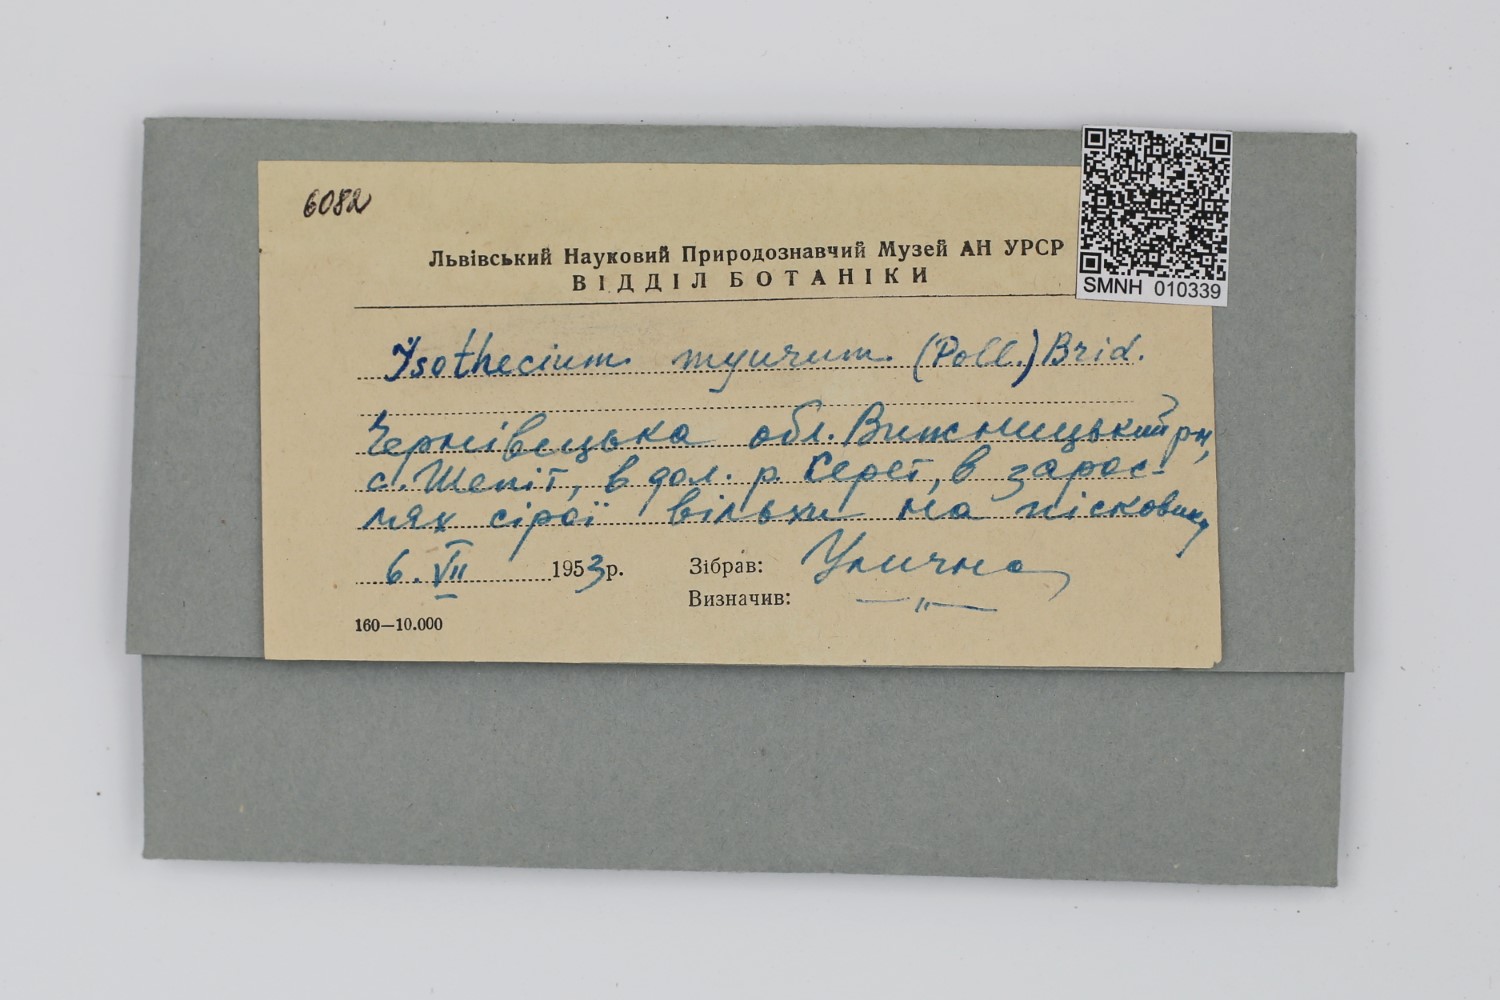 6082
Львівський Науковий Природознавчий Музей АН УРСР
ВІДДІЛ БОТАНІКИ
SMNH 010339
Isothecium myurum (Poll.) Brid.
Чернівецька обл. Вижницький рн,
с. Шепіт, в дол. р. Серет, в зарос-
лях сірої вільхи на пісковику
6. VII 1953 р. Зібрав: Улична
Визначив: —〃—
160—10.000